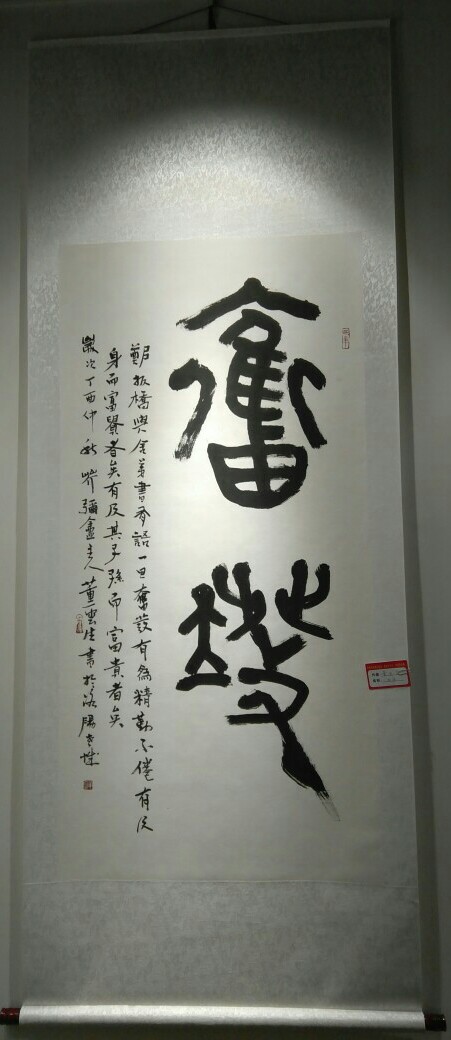 奮發
鄭板橋與舍弟書有語一旦奮發有為精勤不倦有及
身而富貴者矣有及其子孫而富貴者矣
歲次丁酉仲秋芥彌盦主人董雲生書於洛陽老城